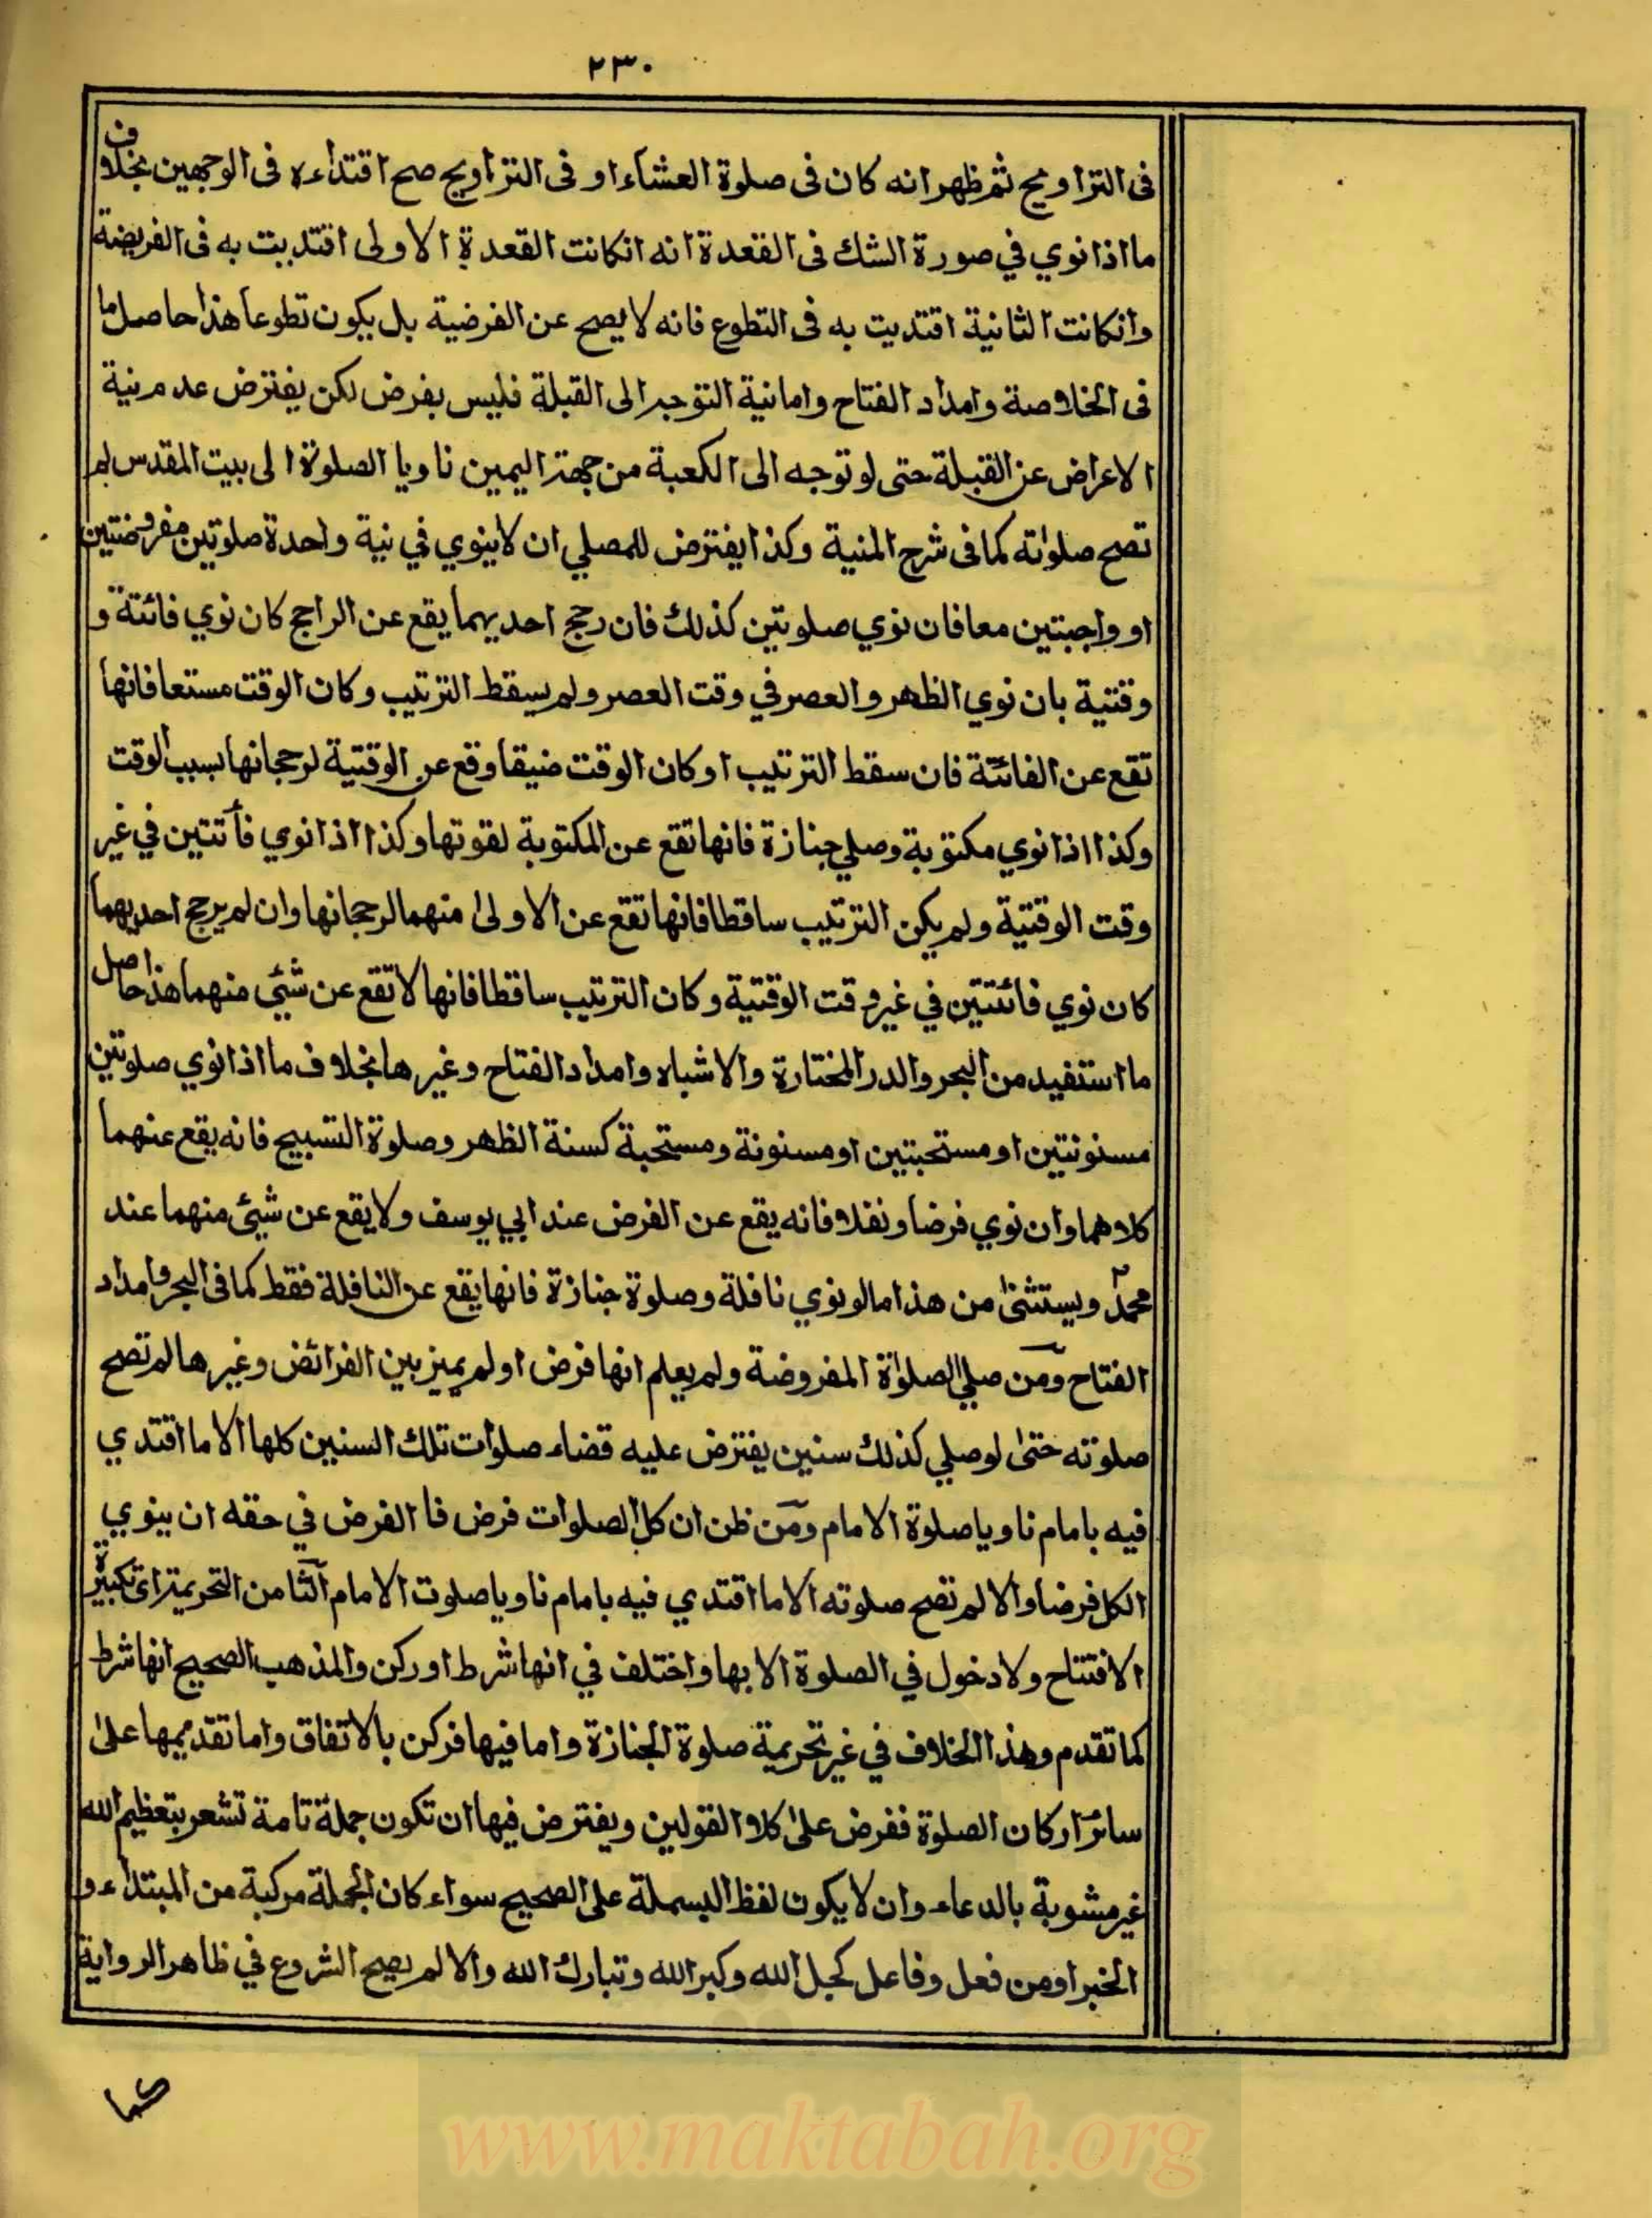 ٢٣٠
فى التراويح ثم ظهر انه كان فى صلوة العشاء او فى التراويح صح اقتداءه فى الوجهين بخلاف
ما اذا نوي في صورة الشك فى القعدة انه انكانت القعدة الاولى اقتديت به فى الفريضة
وانكانت الثانية اقتديت به فى التطوع فانه لا يصح عن الفرضية بل يكون تطوعا هذا حاصل ما
فى الخلاصة وامداد الفتاح واما نية التوجه الى القبلة فليس بفرض لكن يفترض عدم نية
الاعراض عن القبلة حتى لو توجه الى الكعبة من جهة اليمين ناويا الصلوة الى بيت المقدس لم
تصح صلواته كما فى شرح المنية وكذا يفترض للمصلي ان لا ينوي في نية واحدة صلوتين مفروضتين
او واجبتين معا فان نوي صلوتين كذلك فان رجح احديهما يقع عن الراجح كان نوي فائتة و
وقتية بان نوي الظهر والعصر في وقت العصر ولم يسقط الترتيب وكان الوقت مستعا فانها
تقع عن الفائتة فان سقط الترتيب او كان الوقت ضيقا وقع عن الوقتية لرجحانها بسبب الوقت
وكذا اذا نوي مكتوبة وصلي جنازة فانها تقع عن المكتوبة لقوتها وكذا اذا نوي فآئتتين في غير
وقت الوقتية ولم يكن الترتيب ساقطا فانها تقع عن الاولى منهما لرجحانها وان لم يرجح احديهما
كان نوي فائتتين في غير وقت الوقتية وكان الترتيب ساقطا فانها لا تقع عن شئي منهما هذا حاصل
ما استفيد من البحر والدر المختارة والاشباه وامداد الفتاح وغيرها بخلاف ما اذا نوي صلوتين
مسنونتين او مستحبتين او مسنونة ومستحبة كسنة الظهر وصلوة التسبيح فانه يقع عنهما
كلاهما وان نوي فرضا ونفلا فانه يقع عن الفرض عند ابي يوسف ولا يقع عن شيئ منهما عند
محمد ويستثنى من هذا ما لو نوي نافلة وصلوة جنازة فانها يقع عن النافلة فقط كما فى البحر وامداد
الفتاح ومن صلي الصلوٰة المفروضة ولم يعلم انها فرض او لم يميز بين الفرائض وغيرها لم تصح
صلوته حتى لو صلي كذلك سنين يفترض عليه قضاء صلوات تلك السنين كلها الا ما اقتدي
فيه بامام ناويا صلوة الامام ومن ظن ان كل الصلوات فرض فا الفرض في حقه ان ينوي
الكل فرضا والا لم تصح صلوته الا ما اقتدي فيه بامام ناويا صلوت الامام الثامن التحريمة اى تكبيرة
الافتتاح ولا دخول في الصلوة الا بها واختلف في انها شرط او ركن والمذهب الصحيح انها شرط
كما تقدم وهذا الخلاف في غير تحريمة صلوة الجنازة واما فيها فركن بالاتفاق واما تقديمها على
سائر اركان الصلوة ففرض على كلا القولين ويفترض فيها ان تكون جملة تامة تشعر بتعظيم الله
غير مشوبة بالدعاء وان لا يكون لفظ البسملة على الصحيح سواء كان الجملة مركبة من المبتداء و
الخبر او من فعل وفاعل كجل الله وكبر الله وتبارك الله والا لم يصح الشروع في ظاهر الرواية
كما
www.maktabah.org